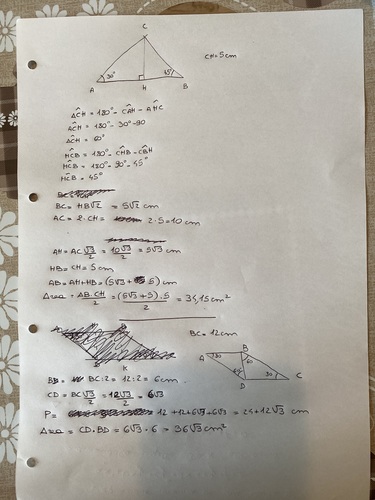 C
CH=5cm
30°
45°
A
H
B
AĈH = 180° - CÂH - AĤC
AĈH = 180° - 30° - 90
AĈH = 60°
HĈB = 180° - CĤB - CB̂H
HĈB = 180° - 90° - 45°
HĈB = 45°
BC = HB√2 = 5√2 cm
AC = 2·CH = 2·5 = 10 cm
AH = AC √3/2 = 10√3/2 = 5√3 cm
HB = CH = 5 cm
AB = AH + HB = (5√3 + 5) cm
Area = AB·CH/2 = (5√3+5)·5/2 = 34,15 cm²
K
BC = 12cm
A
B
30
60
30
D
C
BD = BC:2 = 12:2 = 6cm
CD = BC √3/2 = 12√3/2 = 6√3
P = 12+12+6√3+6√3 = 24+12√3 cm
Area = CD·BD = 6√3·6 = 36√3 cm²